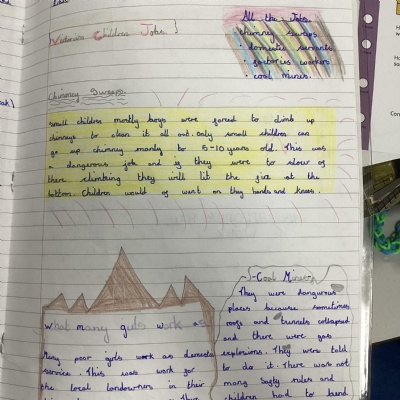 Victorian Children Jobs
All the Jobs
chimney sweeps
• domestic servants
• factories workers
• coal mines.
Chimney Sweeps
Small children montly boys were forced to climb up
chimneys to clean it all out. only small children can
go up chimney manly to 5-10 years old. This was
a dangerous job and is they were to slow of
there climbing they will lit the fire at the
bottom. Children would of went on they hands and knees.
What many girls work as
Many poor girls work as domestic
service. This was work for
the local landowners in their
Coal Mines
They were dangurous
places because sometimes
roofs and tunnels collapsed
and there were gas
explosions. They were told
to do it. There was not
many safty rules and
children had to bend